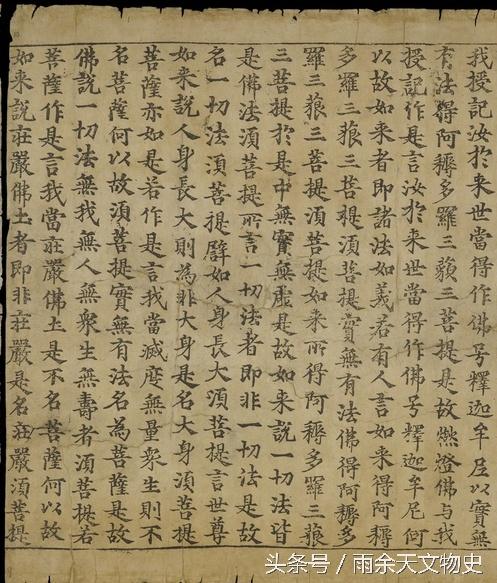 我授記汝於来世當得作佛号釋迦牟尼以實無
有法得阿耨多羅三藐三菩提是故燃澄佛与我
授記作是言汝於来世當得作佛号釋迦牟尼何
以故如来者即諸法如義若有人言如来得阿耨
多羅三藐三菩提湏菩提實無有法佛得阿耨多
羅三藐三菩提湏菩提如来所得阿耨多羅三藐
三菩提於是中無實無虚是故如来說一切法皆
是佛法湏菩提所言一切法者即非一切法是故
名一切法湏菩提譬如人身長大湏菩提言世尊
如来說人身長大則為非大身是名大身湏菩提
菩薩亦如是若作是言我當滅度無量衆生則不
名菩薩何以故湏菩提實無有法名為菩薩是故
佛說一切法無我無人無衆生無壽者湏菩提若
菩薩作是言我當莊嚴佛土是不名菩薩何以故
如来說莊嚴佛土者即非莊嚴是名莊嚴湏菩提
头条号 / 雨余天文物史